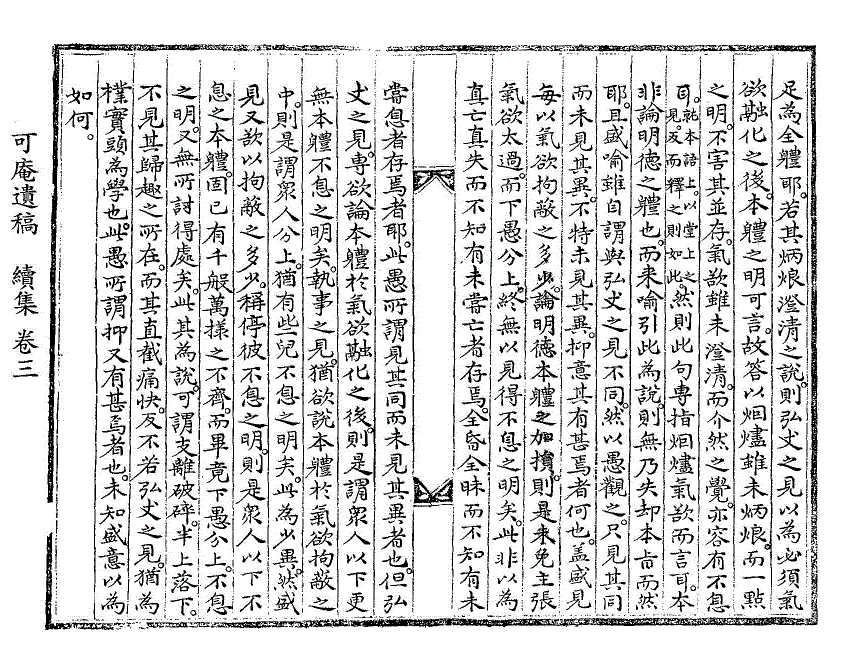 足為全體耶。若其炳烺澄清之說。則弘丈之見以為必須氣
欲融化之後。本體之明可言。故答以烟燼雖未炳烺。而一點
之明。不害其並存。氣欲雖未澄清。而介然之覺。亦容有不息
耳。就本語上。以堂上之見。反而釋之則如此。然則此句專指烟燼氣欲而言耳。本
非論明德之體也。而來喻引此為說。則無乃失却本旨而然
耶。且盛喻雖自謂與弘丈之見不同。然以愚觀之。只見其同
而未見其異。不特未見其異。抑意其有甚焉者何也。蓋盛見
每以氣欲拘蔽之多少。論明德本體之加損。則是未免主張
氣欲太過。而下愚分上。終無以見得不息之明矣。此非以為
真亡真失而不知有未嘗亡者存焉。全昏全昧而不知有未
嘗息者存焉者耶。此愚所謂見其同而未見其異者也。但弘
丈之見。專欲論本體於氣欲融化之後。則是謂衆人以下更
無本體不息之明矣。執事之見。猶欲說本體於氣欲拘蔽之
中。則是謂衆人分上。猶有些兒不息之明矣。此為少異。然盛
見又欲以拘蔽之多少。稱停彼不息之明。則是衆人以下不
息之本體。固已有千般萬樣之不齊。而畢竟下愚分上。不息
之明。又無所討得處矣。此其為說。可謂支離破碎。半上落下。
不見其歸趣之所在。而其直截痛快。反不若弘丈之見。猶為
樸實頭為學也。此愚所謂抑又有甚焉者也。未知盛意以為
如何。
可庵遺稿 續集 卷三